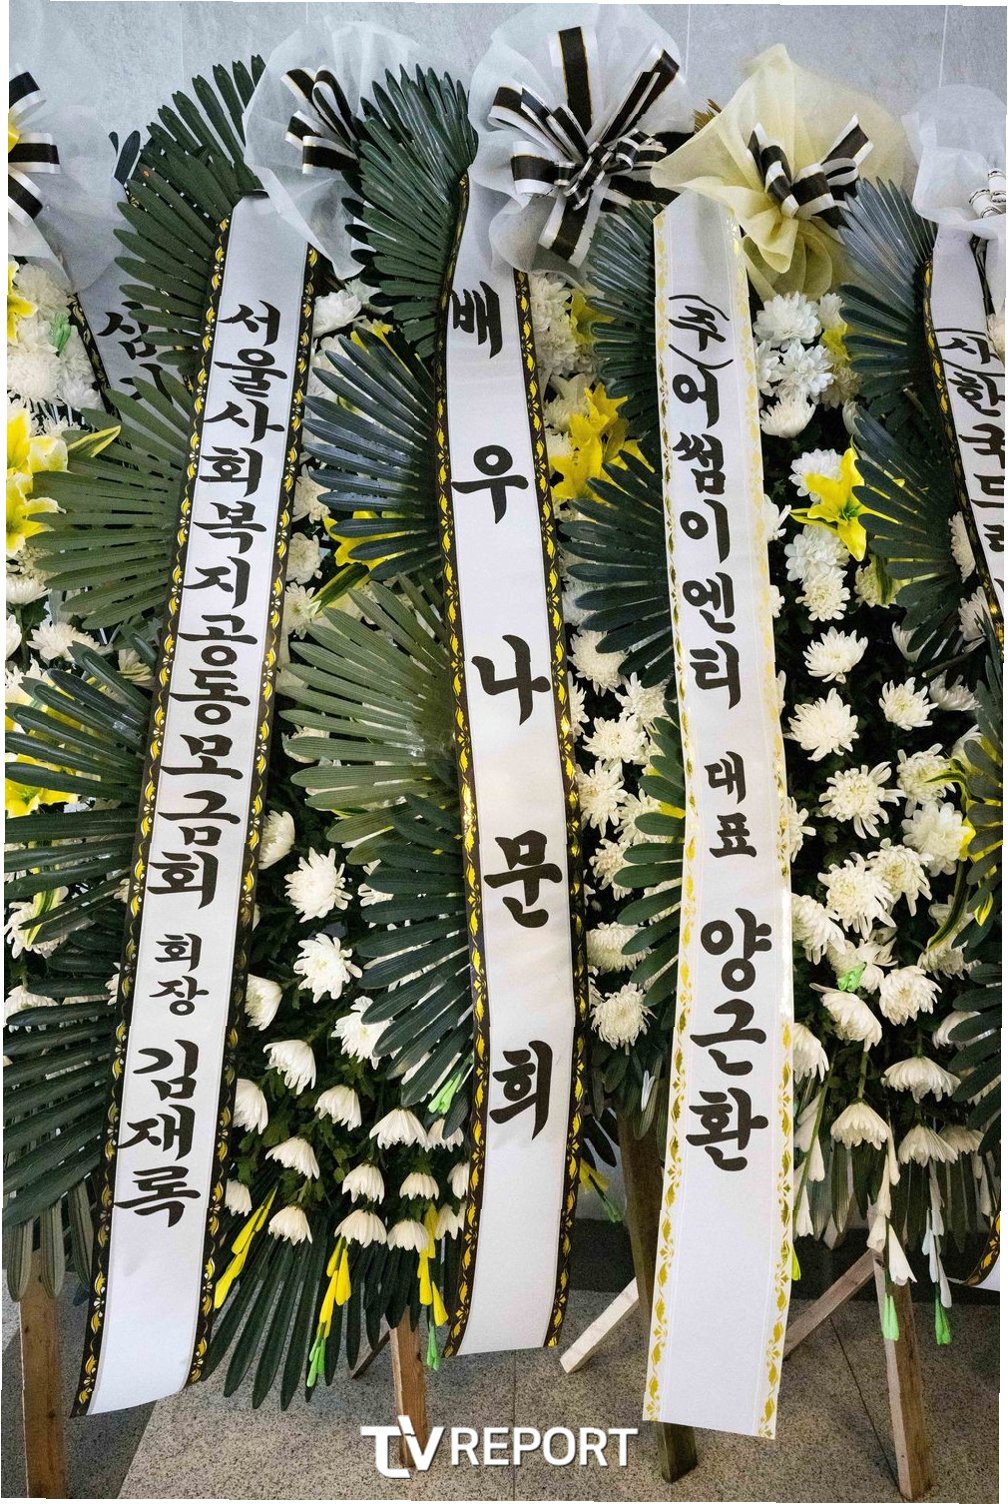 서울사회복지공동모금회 회장 김재록
배우 나문희
(주)어썸이엔티 대표 양근환
(사)한국드
TVREPORT